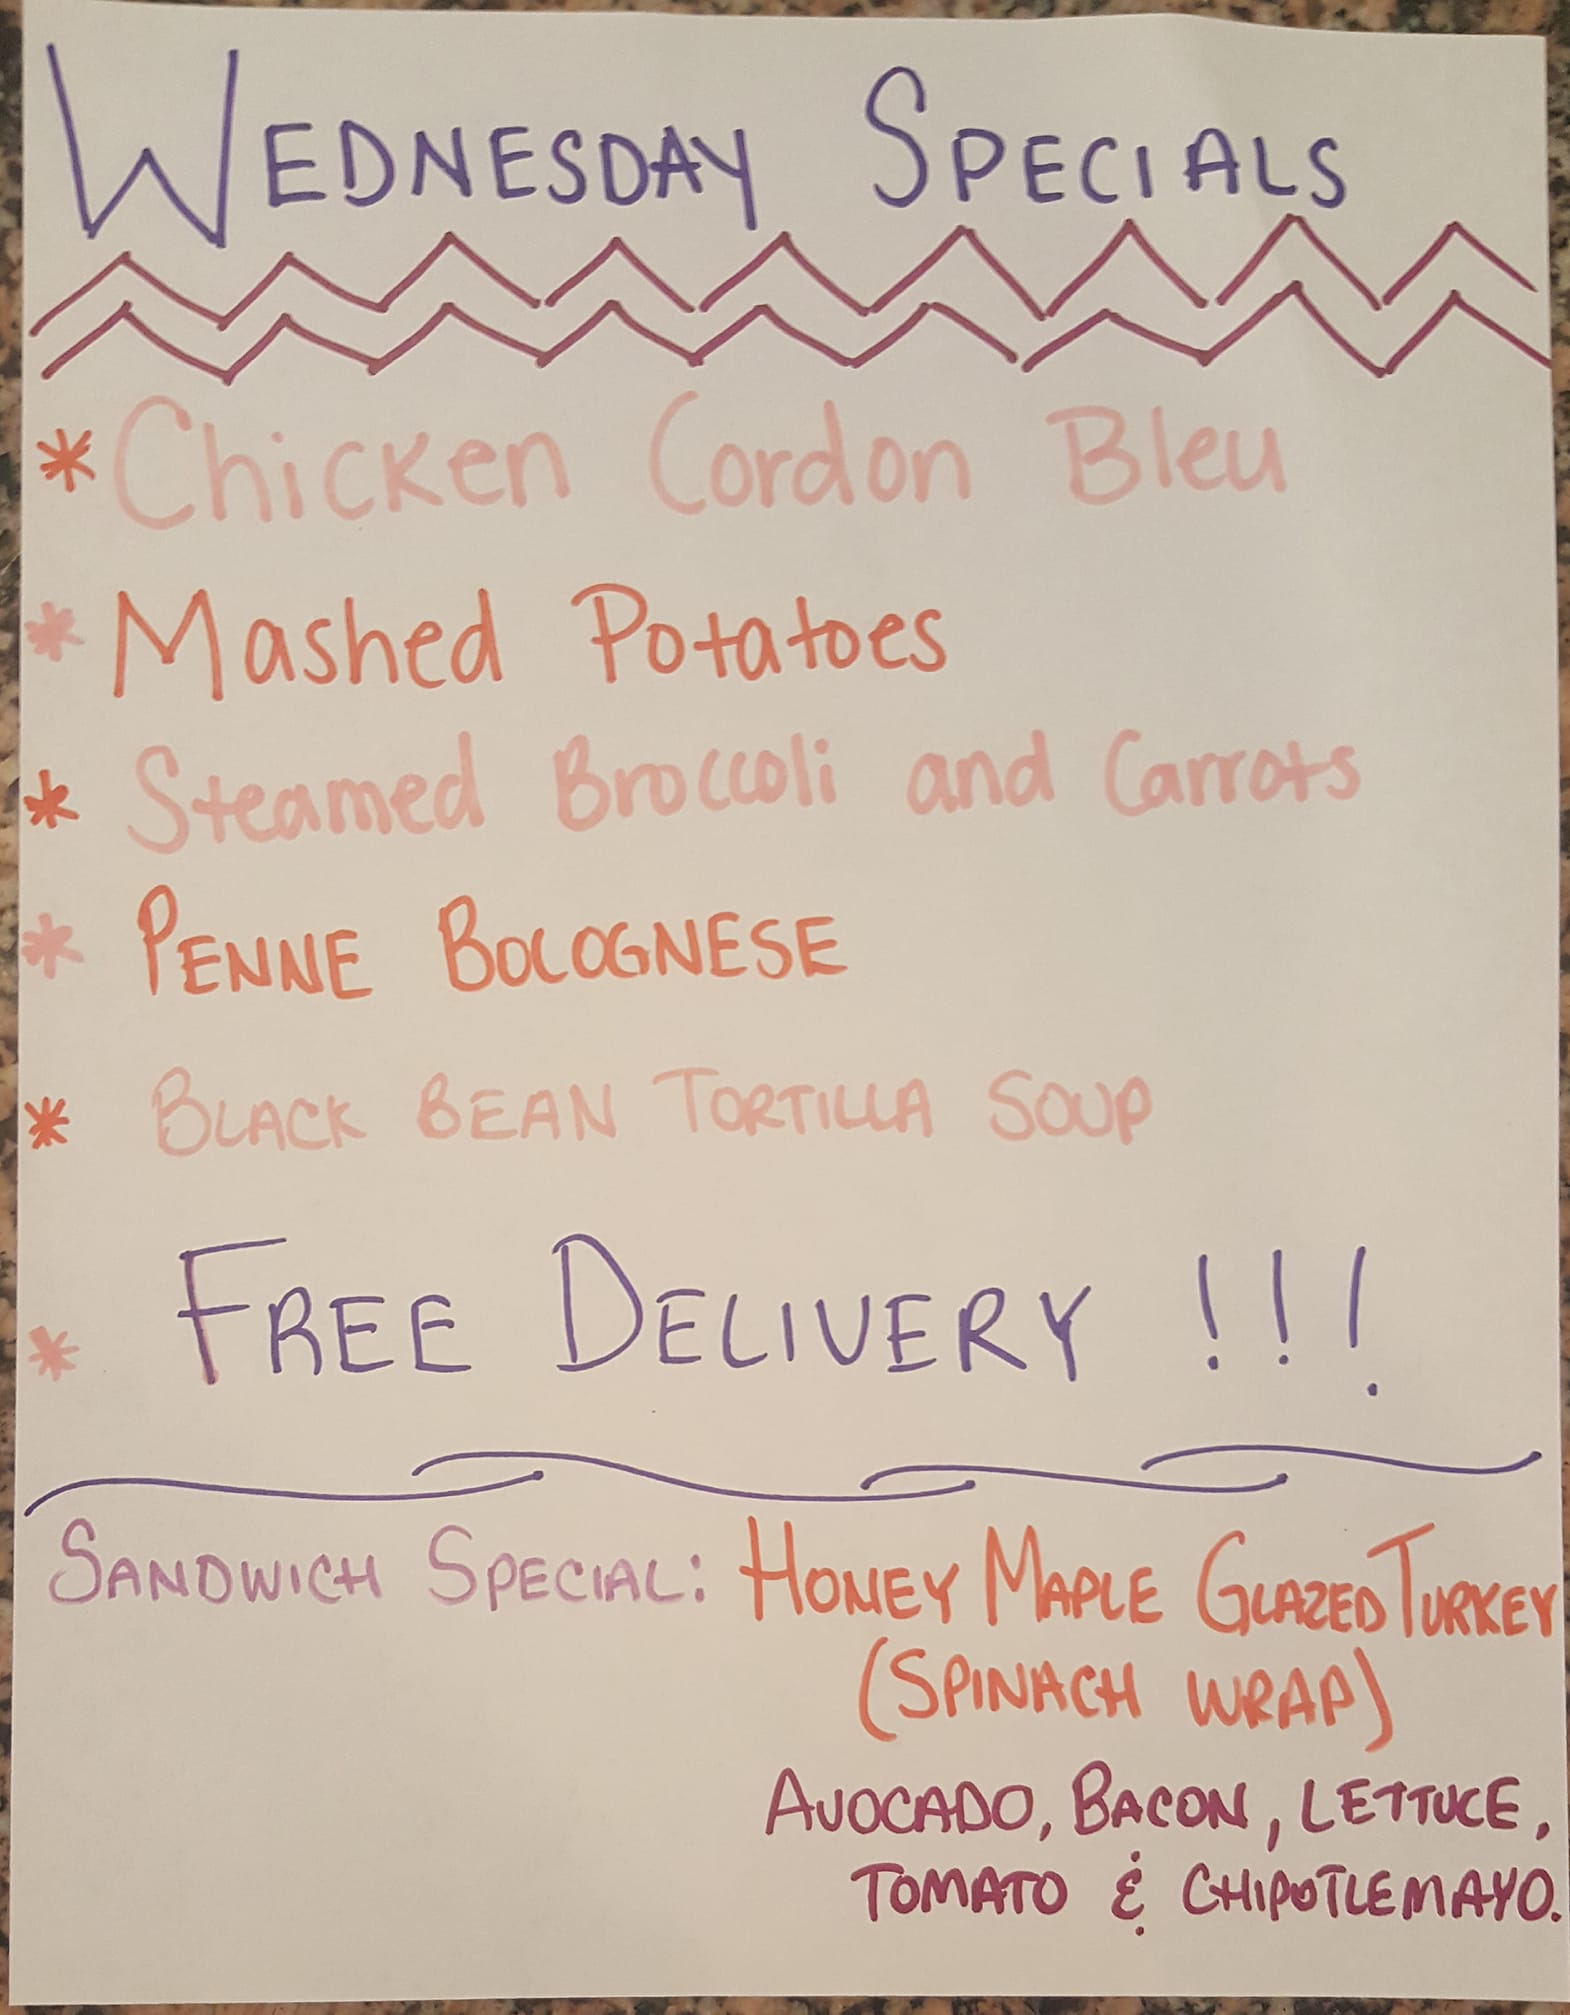 WEDNESDAY SPECIALS
* Chicken Cordon Bleu
* Mashed Potatoes
* Steamed Broccoli and Carrots
* PENNE BOLOGNESE
* BLACK BEAN TORTILLA SOUP
* FREE DELIVERY !!!
SANDWICH SPECIAL: HONEY MAPLE GLAZED TURKEY
(SPINACH WRAP)
AVOCADO, BACON, LETTUCE,
TOMATO & CHIPOTLE MAYO.